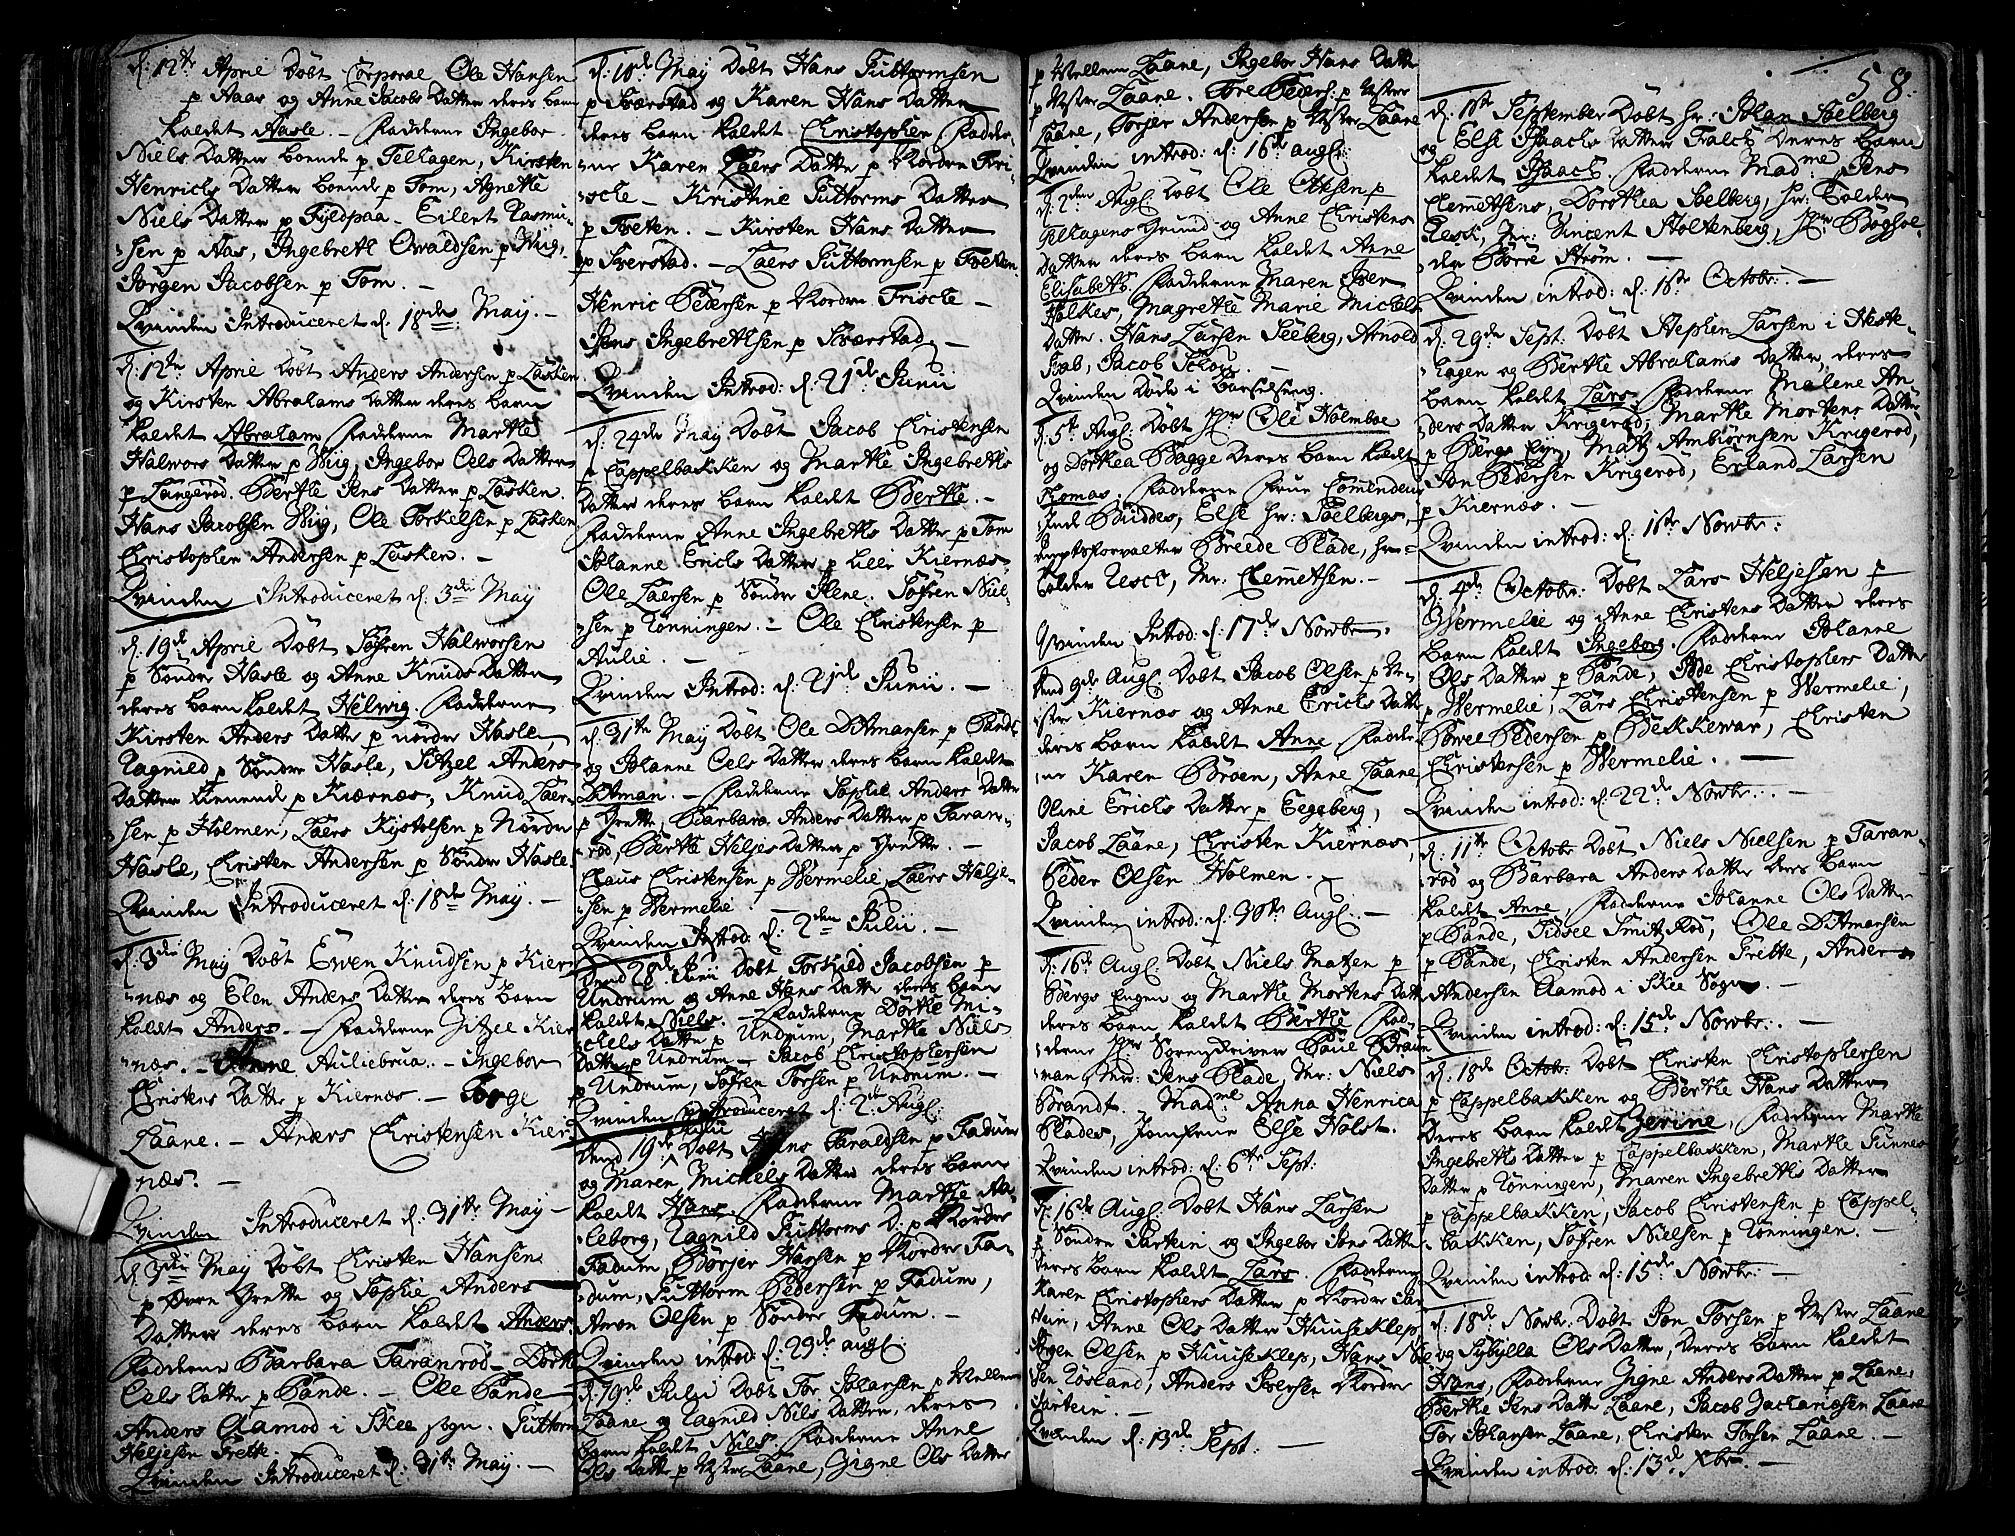 d: 12te April Döbt Corporal Ole Hansen
p Aaas og Anne Jacobs Datter deres barn
kaldet Hasle. — Fadderne Ingebor
Niels Datter boende p Felhagen, Kirsten
Henrichs Datter boende p Tom, Agnette
Niels Datter p Fyldpaa — Eilert Rasmu-
sen p Aas, Ingebreth Owaldsen p Wiig,
Jörgen Jacobsen p Tom. —
Qvinden Introduceret d: 18de May. —
d: 12te April Döbt Anders Andersen p Lasken
og Kirsten Abrahams Datter deres barn
kaldet Abraham Fadderne Marthe
Halwors Datter p Wiig, Ingebor Oels Datter
p Langeröd. Berthe Jens Datter p Lasken.
Hans Jacobsen Wiig, Ole Torkelsen p Lasken
Christopher Andersen p Lasken. —
Qvinden Introduceret d: 3die May
d: 19de April Döbt Söfren Halworsen
p Söndre Hasle og Anne Knuds Datter
deres barn kaldet Helwig. Fadderne
Kirsten Anders Datter p nördre Hasle,
Ragnild p Söndre Hasle, Sitzel Anders
Datter p Kiernæs, Knud Laer-
sen p Holmen, Laers Kystolsen p Nördre
Hasle, Christen Andersen p Söndre Hasle.
Qvinden Introduceret d: 18de May. —
d: 3die May Döbt Ewen Knudsen p Kier-
næs og Elen Anders Datter deres barn
kaldt Anders. — Fadderne Zitzel Kier-
næs. — Anne Auliebrua. — Ingebor
Christens Datter p Kiernæs. — Borge
Laane. — Anders Christensen Kier-
næs. —
Qvinden Introduceret d: 31te May —
d: 3die May Döbt Christen Hansen
p Övre Grette og Sophie Anders
Datter deres barn kaldt Anders.
Fadderne Barbara Taranröd — Dorthe
Oels Datter p Sande. — Ole Sande
Anders Aamod i Skee sogn. Guttorm
Heljesen Grette.
Qvinden Introduceret d: 31te May. —
d: 10de May Döbt Hans Guttormsen
p Sværstad og Karen Hans Datter
deres barn kaldet Christopher Fadder-
ne Karen Laers Datter p Nordre Fri-
sche — Kristine Guttorms Datter
p Tveten. — Kirsten Hans Datter
p Sverstad. — Laers Guttormsen p Tveten
Henric Pedersen p Nordre Frische —
Jens Ingebrethsen p Sværstad. —
Qvinden Introd: d: 21de Junii
d: 24de May Döbt Jacob Christensen
p Cappelbakken og Marthe Ingebreths
Datter deres barn kaldt Berthe. —
Fadderne Anne Ingebreths Datter p Tom
Johanne Erichs Datter p Leer Kiernæs.
Ole Laersen p Söndre Ilene. Söfren Niel-
sen p Rönningen. — Ole Christensen p
Aulie. —
Qvinden Introd: d: 21de Junii. —
d: 31te May Döbt Ole Ditmansen p Sande
og Johanne Oels Datter deres barn kaldt
Ditman. — Fadderne Sophie Anders Datter
p Grette, Barbara Anders Datter p Taran-
röd, Berthe Heljes Datter p Grette. —
Claus Christensen p Wermelie, Laers Helje-
sen p Wermelie —
Qvinden Introd: d: 2den Julii. —
Dend 28de Junii Döbt Torkild Jacobsen p
Undrum og Anne Hans Datter deres barn
kaldet Niels. — Fadderne Dorthe Mi-
chels Datter p Undrum, Marthe Niels
Datter p Undrum — Jacob Christophersen
p Undrum, Söfren Torsen p Undrum. —
Qvinden Introduceret d: 2de Augl:
Dend 19de Julii Döbt Hans Haraldsen p Fadum
og Maren Michels Datter deres barn
kaldt Hans. Fadderne Marthe Aa-
seborg, Ragnild Guttorms D: p Nordre
Fadum, Börger Hassen p Nordre Fa-
dum, Guttorm Pedersen p Fadum,
Amon Olsen p Söndre Fadum. —
Qvinden introd: d: 29de augl:
d: 19de Julii Döbt Tor Johansen p Mellem
Laane og Ragnild Nils Datter, deres
barn kaldt Nils. Fadderne Anne
Ols Datter p Vester Laane, Signe Ols Datter
p Mellem Laane, Ingebor Hans Datter
p Vester Laane. Tore Peders: p Vester
Laane, Torjer Andersen p Vester Laane
Qvinden introd: d: 16de augl:
d: 2den Augl: Döbt Ole Olsen p
Felhagens Grund og Anne Christens
Datter deres barn kaldet Anne
Elisabeth. Fadderne Maren Iver
Holkes, Magrethe Marie Michels
Datter. Hans Larsen Seeberg, Arnold
Fab, Jacob Schou. —
Qvinden döde i Barselseng.
d: 5te Augl: Döbt Hr: Ole Holmboe
og Dorthea Bagge Deres barn kaldt
Thomas. Fadderne Frue Comendeur
Budde, Else Hr: Soelbergs,
Forvalter Brede Plade, Hr:
Tolder Resch, Mr: Clemmetsen. —
Qvinden Introd: d: 17de Novbr.
Dend 9de Augl: Döbt Jacob Olsen p Ve-
ster Kiernæs og Anne Erichs Datter
deres barn kaldt Anne Fadder-
ne Karen Broen, Anne Laane
Oline Erichs Datter p Eegeberg,
Jacob Laane, Christen Kiernæs,
Peder Olsen Holmen. —
Qvinden introd: d: 30te Augl. —
d: 16de Augl: Döbt Niels Matzen p
Bergs Engen og Marthe Mortens Datter
deres barn kaldet Berthe Fad-
derne Hr: Sorenskriver Poul Braun
man, Mr: Jens Plade, Mr: Niels
Brandt. Mad:me Anna Henrica
Plades, Jomfrue Else Holst. —
Qvinden introd: d: 6te Sept:
d: 16de Augl: Döbt Hans Larsen
p Söndre Sartein og Ingebor Jens Datter
deres barn kaldt Lars. Fadderne
Karen Christophers Datter p Nordre Sar-
tein, Anne Ols Datter Huuseklep,
Jörgen Olsen p Huuseklep, Hans Niel-
sen Rösland, Anders Iversen Nordre
Sartein. —
Qvinden d: 13de Sept: —
58.
d: 11te September Döbt Hr: Johan Soelberg
og Else Isaachs Datter Falch Deres barn
kaldet Isaach. Fadderne Mad:me Jens
Clemmetsens, Dorothea Soelberg, Hr: Tolder
Resch, Mr: Vincent Stoltenberg, Hr: Boghol-
der Börre Ström. —
Qvinden introd: d: 18de Octobr: —
d: 29de Sept: Döbt Stephen Larsen i Heste-
hagen og Berthe Abrahams Datter, deres
barn kaldt Lars. Fadderne Malene An-
ders Datter Krigeröd, Marthe Mortens Datter
p Bergs Eyn, Matz Ambiörnsen Krigeröd,
Jon Pedersen Krigeröd, Erland Larsen
p Kiernæs. —
Qvinden introd: d: 1ste Novbr:
d: 4de Octobr: Döbt Lars Heljesen p
Wermelie og Anne Christens Datter deres
barn kaldt Ingeborg. Fadderne Johanne
Ols Datter p Sande, Ide Christophers Datter
p Wermelie, Lars Christensen p Wermelie,
Povel Pedersen p Bekkevar, Christen
Christensen p Wermelie. —
Qvinden introd: d: 22de Novbr: —
d: 11te Octobr: Döbt Niels Nielsen p Taran-
röd og Barbara Anders Datter Deres Barn
kaldt Anne, Fadderne Johanne Ols Datter
p Sande, Sidsel Smitz Röd, Ole Ditmansen
p Sande, Christen Andersen Grette, Anders
Andersen Aamod i Skee Sogn. —
Qvinden introd: d: 15de Novbr: —
d: 18de Octobr: Döbt Christen Christophersen
p Cappelbakken og Berthe Hans Datter
Deres barn kaldt Zerine, Fadderne Marthe
Ingebreths Datter p Cappelbakken, Marthe Gunners
Datter p Rönningen, Maren Ingebreths Datter
p Cappelbakken, Jacob Christensen p Cappel-
bakken, Söfren Nielsen p Rönningen. —
Qvinden introd: d: 15de Novbr: —
d: 18de Novbr: Döbt Jon Torsen p Vester Laane
og Sybylla Ols Datter, Deres barn kaldet
Hans, Fadderne Signe Anders Datter p Laane,
Berthe Jens Datter Laane, Jacob Zachariasen Laane
Tor Johansen Laane, Christen Torsen Laane. —
Qvinden introd: d: 13de Xbr: —